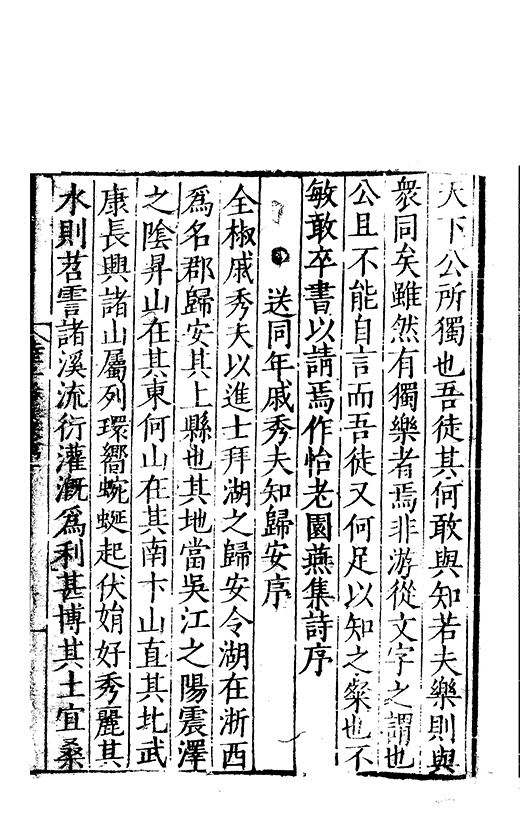 天下公所獨也吾徒其何敢與知若夫樂則與
衆同矣雖然有獨樂者焉非游從文字之謂也
公且不能自言而吾徒又何足以知之粲也不
敏敢卒書以請焉作怡老園燕集詩序
送同年戚秀夫知歸安序
全椒戚秀夫以進士拜湖之歸安令湖在浙西
爲名郡歸安其上縣也其地當吳江之陽震澤
之陰昇山在其東何山在其南卞山直其北武
康長興諸山屬列環嚮蜿蜒起伏娟好秀麗其
水則苕霅諸溪流衍灌漑爲利甚博其土宜桑